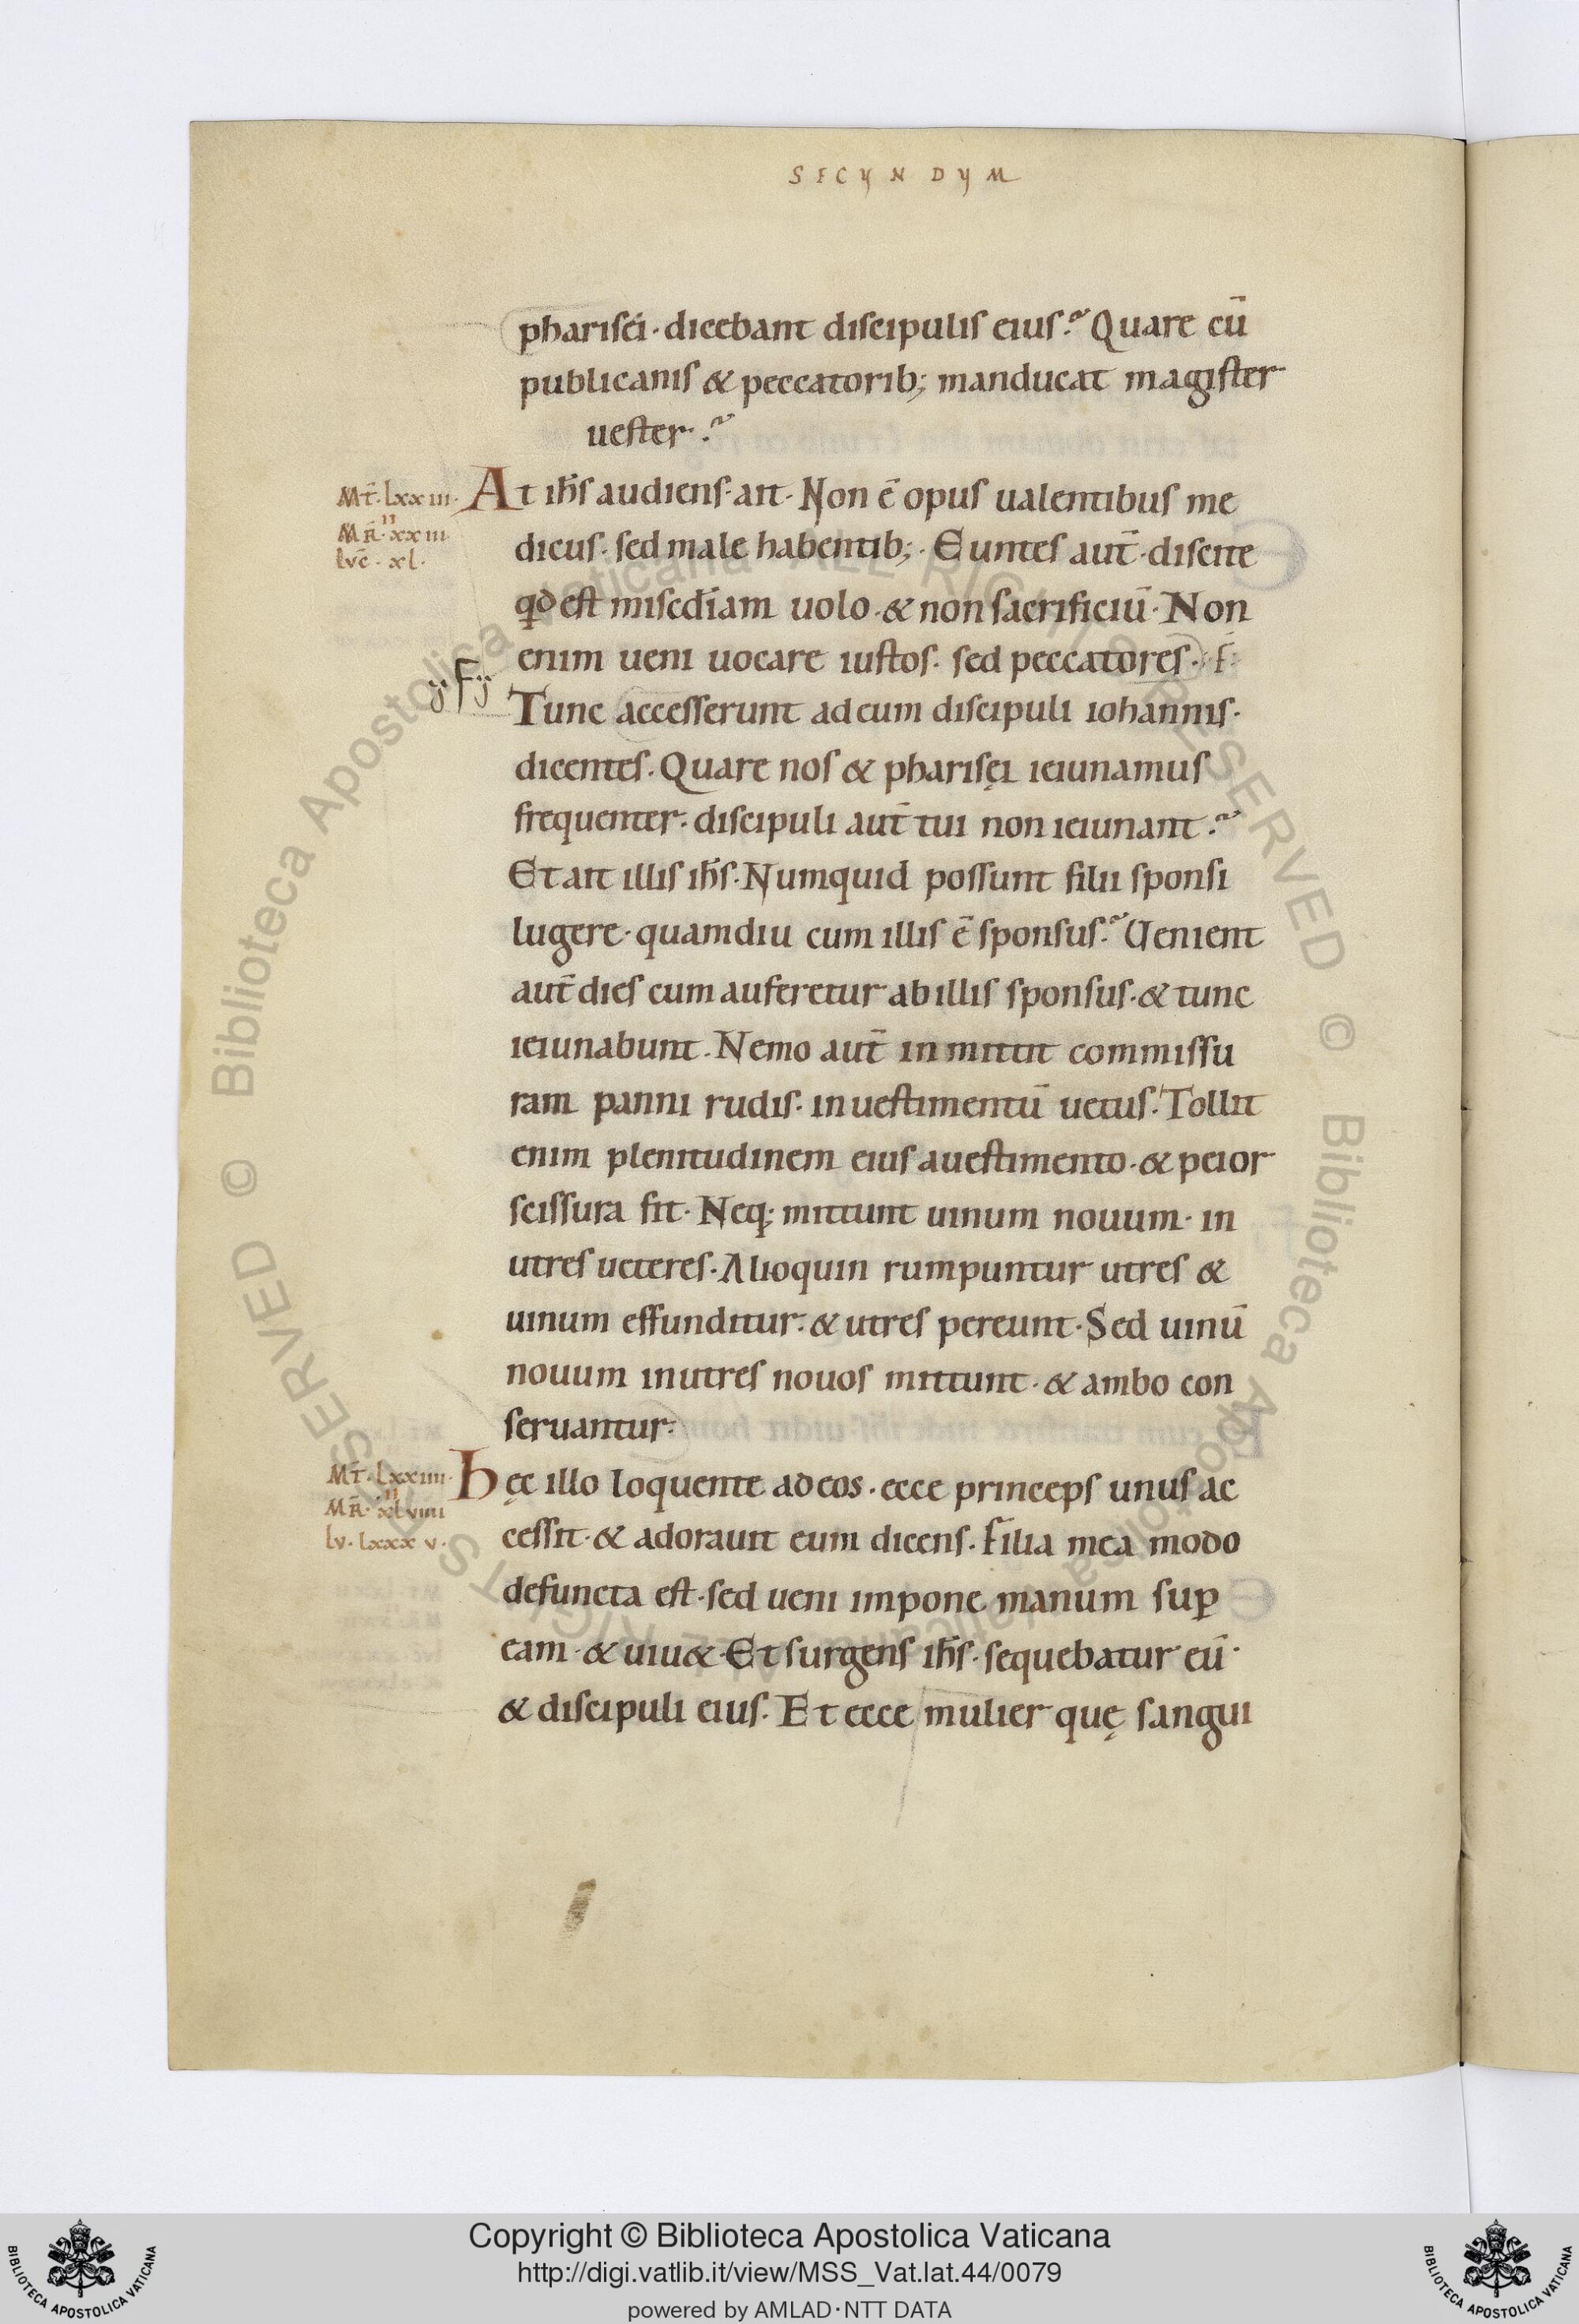 SECVNDVM
pharisei · dicebant discipulis eius? Quare cū
publicanis & peccatorib; manducat magister
uester?
MT̄ · lxxiii ·
MR̄ · xxiii ·
II
lvc̄ · xl ·
At ih̄s audiens · ait · Non ē opus ualentibus me
dicus · sed male habentib; · Euntes aut̄ · discite
qd est misc̄diam uolo · & non sacrificiū · Non
enim ueni uocare iustos · sed peccatores ·
Tunc accesserunt ad eum discipuli iohannis ·
dicentes · Quare nos & pharisęi ieiunamus
frequenter · discipuli aut̄ tui non ieiunant?
Et ait illis ih̄s · Numquid possunt filii sponsi
lugere · quamdiu cum illis ē sponsus? Uenient
aut̄ dies cum auferetur ab illis sponsus · & tunc
ieiunabunt · Nemo aut̄ inmittit commissu
ram panni rudis · in uestimentū uetus · Tollit
enim plenitudinem eius a uestimento · & peior
scissura fit · Neq; mittunt uinum nouum · in
utres ueteres · Alioquin rumpuntur utres &
uinum effunditur · & utres pereunt · Sed uinū
nouum in utres nouos mittunt · & ambo con
seruantur ·
MT̄ · lxxiiii ·
II
MR̄ · xlviiii
lv · lxxxv ·
Hęc illo loquente ad eos · ecce princeps unus ac
cessit · & adorauit eum dicens · Filia mea modo
defuncta est · sed ueni impone manum sup̄
eam · & uiu& · Et surgens ih̄s · sequebatur eū ·
& discipuli eius · Et ecce mulier quę sangui
© Biblioteca Apostolica Vaticana ALL RIGHTS RESERVED
© Biblioteca Apostolica Vaticana ALL RIGHTS RESERVED
Copyright © Biblioteca Apostolica Vaticana
http://digi.vatlib.it/view/MSS_Vat.lat.44/0079
powered by AMLAD·NTT DATA
BIBLIOTECA APOSTOLICA VATICANA
BIBLIOTECA APOSTOLICA VATICANA